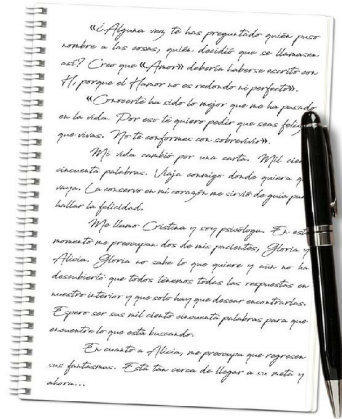 «¿Alguna vez te has preguntado quién puso
nombre a las cosas, quién decidió que se llamasen
así? Creo que «Amor» debería haberse escrito con
H, porque el Hamor no es redondo ni perfecto».
«Conocerte ha sido lo mejor que me ha pasado
en la vida. Por eso te quiero pedir que seas feliz
que vivas. No te conformes con sobrevivir».
Mi vida cambió por una carta. Mil cien
cincuenta palabras. Viaja conmigo donde quiera q
vaya. La conservo en mi corazón me sirvió de guía par
hallar la felicidad.
Me llamo Cristina y soy psicóloga. En este
momento me preocupan dos de mis pacientes, Gloria y
Alicia. Gloria no sabe lo que quiere y aún no ha
descubierto que todos tenemos todas las respuestas en
nuestro interior y que solo hay que desear encontrarlas.
Espero ser sus mil ciento cincuenta palabras para que
encuentre lo que está buscando.
En cuanto a Alicia, me preocupa que regresen
sus fantasmas. Está tan cerca de llegar a su meta y
ahora...